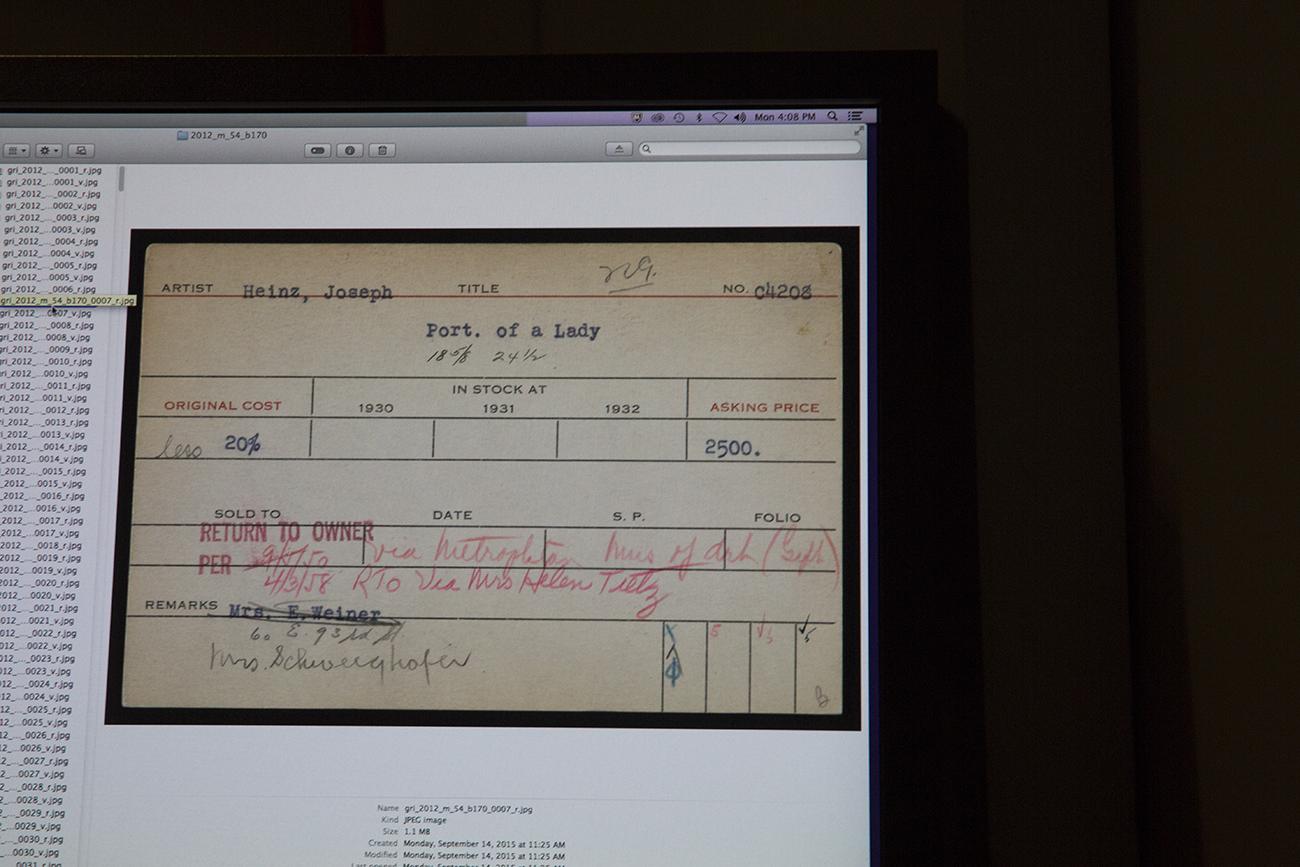 Mon 4:08 PM
2012_m_54_b170
gri_2012_..._0001_r.jpg
gri_2012_...0001_v.jpg
gri_2012_..._0002_r.jpg
gri_2012_...0002_v.jpg
gri_2012_..._0003_r.jpg
gri_2012_...0003_v.jpg
gri_2012_..._0004_r.jpg
gri_2012_...0004_v.jpg
gri_2012_..._0005_r.jpg
gri_2012_...0005_v.jpg
gri_2012_..._0006_r.jpg
gri_2012_m_54_b170_0007_r.jpg
gri_2012_...0007_v.jpg
gri_2012_..._0008_r.jpg
gri_2012_...0008_v.jpg
gri_2012_..._0009_r.jpg
ri_2012_..._0010_r.jpg
ri_2012_...0010_v.jpg
ri_2012_..._0011_r.jpg
ri_2012_...0011_v.jpg
ri_2012_..._0012_r.jpg
ri_2012_..._0013_r.jpg
ri_2012_...0013_v.jpg
ri_2012_..._0014_r.jpg
i_2012_...0014_v.jpg
i_2012_..._0015_r.jpg
i_2012_...0015_v.jpg
i_2012_..._0016_r.jpg
i_2012_...0016_v.jpg
i_2012_..._0017_r.jpg
_2012_...0017_v.jpg
_2012_..._0018_r.jpg
_2012_..._0019_r.jpg
2012_...0019_v.jpg
2012_..._0020_r.jpg
2012_...0020_v.jpg
2012_..._0021_r.jpg
2012_...0021_v.jpg
2012_..._0022_r.jpg
2012_...0022_v.jpg
2012_..._0023_r.jpg
012_..._0024_r.jpg
012_...0024_v.jpg
012_..._0025_r.jpg
12_...0025_v.jpg
12_..._0026_r.jpg
12_...0026_v.jpg
12_..._0027_r.jpg
12_...0027_v.jpg
2_..._0028_r.jpg
2_...0028_v.jpg
2_..._0029_r.jpg
_...0029_v.jpg
_..._0030_r.jpg
_...0030_v.jpg
0031_r.jpg
ARTIST Heinz, Joseph TITLE NO. C4208
Port. of a Lady
18 5/8 24 1/2
ORIGINAL COST IN STOCK AT ASKING PRICE
1930 1931 1932
less 20% 2500.
SOLD TO DATE S. P. FOLIO
RETURN TO OWNER
PER via Metropolitan Mus of Art (Gift)
4/3/58 RTO Via Mrs Helen Tietz
REMARKS Mrs. E. Weiner
60 E. 93rd St
Mrs. Schweighofer
5
Name gri_2012_m_54_b170_0007_r.jpg
Kind JPEG image
Size 1.1 MB
Created Monday, September 14, 2015 at 11:25 AM
Modified Monday, September 14, 2015 at 11:25 AM